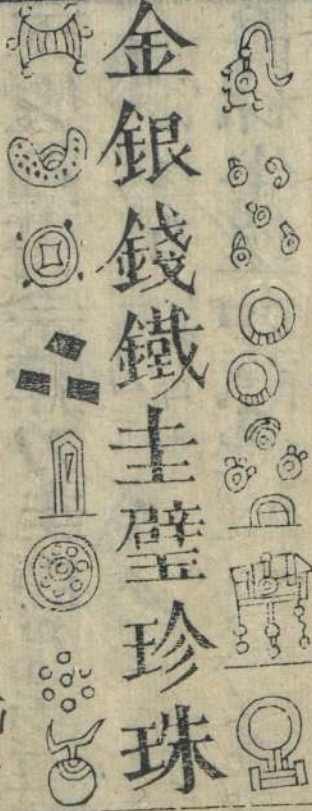 金銀錢鐵圭璧珍珠